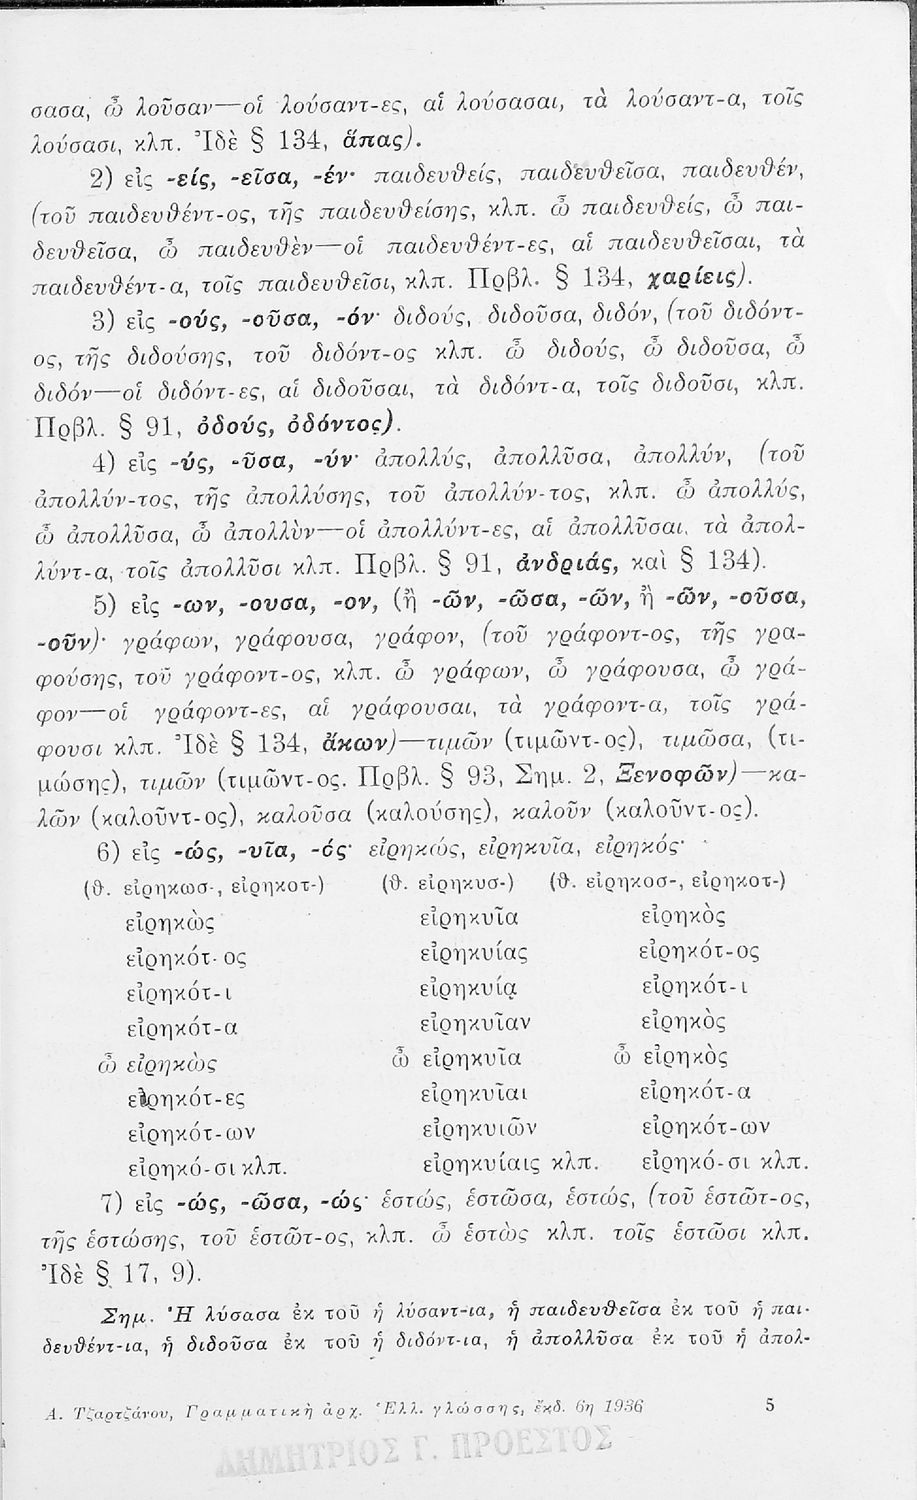 σασα, ὦ λοῦσαν—οἱ λούσαντ-ες, αἱ λούσασαι, τὰ λούσαντ-α, τοῖς
λούσασι, κλπ. Ἰδὲ § 134, ἅπας).
2) εἰς -είς, -εῖσα, -έν· παιδευθείς, παιδευθεῖσα, παιδευθέν,
(τοῦ παιδευθέντ-ος, τῆς παιδευθείσης, κλπ. ὦ παιδευθείς, ὦ παι-
δευθεῖσα, ὦ παιδευθὲν—οἱ παιδευθέντ-ες, αἱ παιδευθεῖσαι, τὰ
παιδευθέντ-α, τοῖς παιδευθεῖσι, κλπ. Πρβλ. § 134, χαρίεις).
3) εἰς -ούς, -οῦσα, -όν· διδούς, διδοῦσα, διδόν, (τοῦ διδόντ-
ος, τῆς διδούσης, τοῦ διδόντ-ος κλπ. ὦ διδούς, ὦ διδοῦσα, ὦ
διδόν—οἱ διδόντ-ες, αἱ διδοῦσαι, τὰ διδόντ-α, τοῖς διδοῦσι, κλπ.
Πρβλ. § 91, ὀδούς, ὀδόντος).
4) εἰς -ύς, -ῦσα, -ύν· ἀπολλύς, ἀπολλῦσα, ἀπολλύν, (τοῦ
ἀπολλύν-τος, τῆς ἀπολλύσης, τοῦ ἀπολλύν-τος, κλπ. ὦ ἀπολλύς,
ὦ ἀπολλῦσα, ὦ ἀπολλὺν—οἱ ἀπολλύντ-ες, αἱ ἀπολλῦσαι, τὰ ἀπολ-
λύντ-α, τοῖς ἀπολλῦσι κλπ. Πρβλ. § 91, ἀνδριάς, καὶ § 134).
5) εἰς -ων, -ουσα, -ον, (ἢ -ῶν, -ῶσα, -ῶν, ἢ -ῶν, -οῦσα,
-οῦν)· γράφων, γράφουσα, γράφον, (τοῦ γράφοντ-ος, τῆς γρα-
φούσης, τοῦ γράφοντ-ος, κλπ. ὦ γράφων, ὦ γράφουσα, ὦ γρά-
φον—οἱ γράφοντ-ες, αἱ γράφουσαι, τὰ γράφοντ-α, τοῖς γρά-
φουσι κλπ. Ἰδὲ § 134, ἄκων)—τιμῶν (τιμῶντ-ος), τιμῶσα, (τι-
μώσης), τιμῶν (τιμῶντ-ος. Πρβλ. § 93, Σημ. 2, Ξενοφῶν)—κα-
λῶν (καλοῦντ-ος), καλοῦσα (καλούσης), καλοῦν (καλοῦντ-ος).
6) εἰς -ώς, -υῖα, -ός· εἰρηκώς, εἰρηκυῖα, εἰρηκός·
(θ. εἰρηκωσ-, εἰρηκοτ-) (θ. εἰρηκυσ-) (θ. εἰρηκοσ-, εἰρηκοτ-)
εἰρηκὼς εἰρηκυῖα εἰρηκὸς
εἰρηκότ-ος εἰρηκυίας εἰρηκότ-ος
εἰρηκότ-ι εἰρηκυίᾳ εἰρηκότ-ι
εἰρηκότ-α εἰρηκυῖαν εἰρηκὸς
ὦ εἰρηκὼς ὦ εἰρηκυῖα ὦ εἰρηκὸς
εἰρηκότ-ες εἰρηκυῖαι εἰρηκότ-α
εἰρηκότ-ων εἰρηκυιῶν εἰρηκότ-ων
εἰρηκό-σι κλπ. εἰρηκυίαις κλπ. εἰρηκό-σι κλπ.
7) εἰς -ώς, -ῶσα, -ώς· ἑστώς, ἑστῶσα, ἑστώς, (τοῦ ἑστῶτ-ος,
τῆς ἑστώσης, τοῦ ἑστῶτ-ος, κλπ. ὦ ἑστὼς κλπ. τοῖς ἑστῶσι κλπ.
Ἰδὲ § 17, 9).
Σημ. Ἡ λύσασα ἐκ τοῦ ἡ λύσαντ-ια, ἡ παιδευθεῖσα ἐκ τοῦ ἡ παι-
δευθέντ-ια, ἡ διδοῦσα ἐκ τοῦ ἡ διδόντ-ια, ἡ ἀπολλῦσα ἐκ τοῦ ἡ ἀπολ-
Α. Τζαρτζάνου, Γραμματικὴ ἀρχ. Ἑλλ. γλώσσης, ἔκδ. 6η 1936 5
ΔΗΜΗΤΡΙΟΣ Γ. ΠΡΟΕΣΤΟΣ